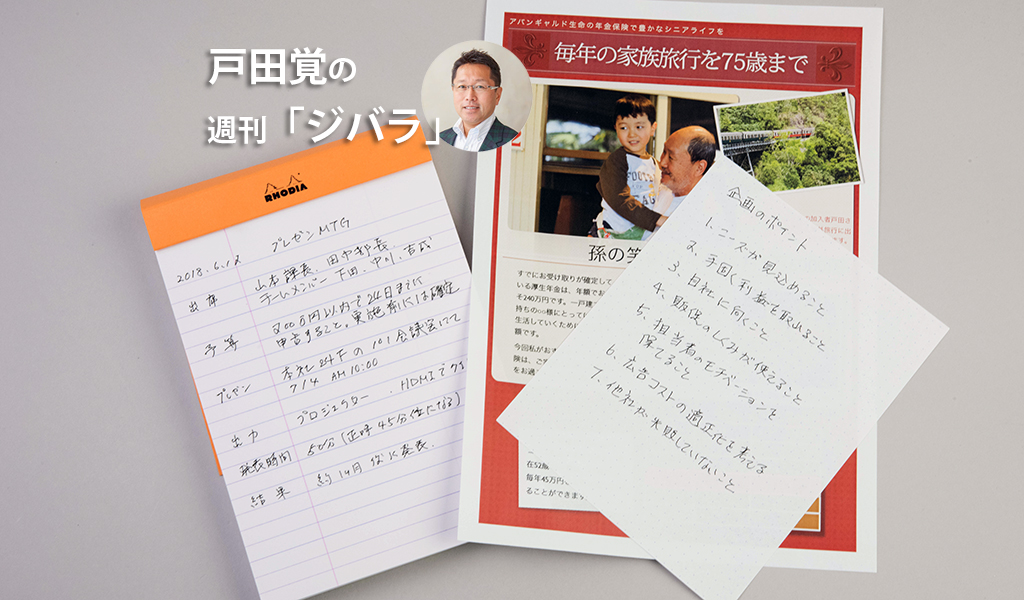 戸田覚の
週刊「ジバラ」
RHODIA
プレゼンMTG
2018.6.12
出席
山本課長、田中部長
チームメンバー 下田、中川、吉成
予算
300万円以内で24日までに
申告すること。実施前には確定
プレゼン
本社24Fの101会議室にて
7/4 AM10:00
出力
プロジェクター .HDMIで
発表時間
50分(正味45分位になる)
結果
約1ヶ月後に発表.
アバンギャルド生命の年金保険で豊かなシニアライフを
毎年の家族旅行を75歳まで
孫の笑
すでにお受け取りが確定して
いる厚生年金は、年額でお
そ240万円です。一戸建
持ちの○○様にとって
生活していくために
額です。
今回私がおす
険は、ご
をお過
の加入者戸田さ
旅行に出
在52歳
毎年45万円、
ることができます
企画のポイント
1. ニーズが見込めること
2. 手固く利益を取れること
3. 自社に向くこと
4. 販促のしくみが使えること
5. 担当者のモチベーションを
保てること
6. 広告コストの適正化を考える
7. 他社が失敗していないこと